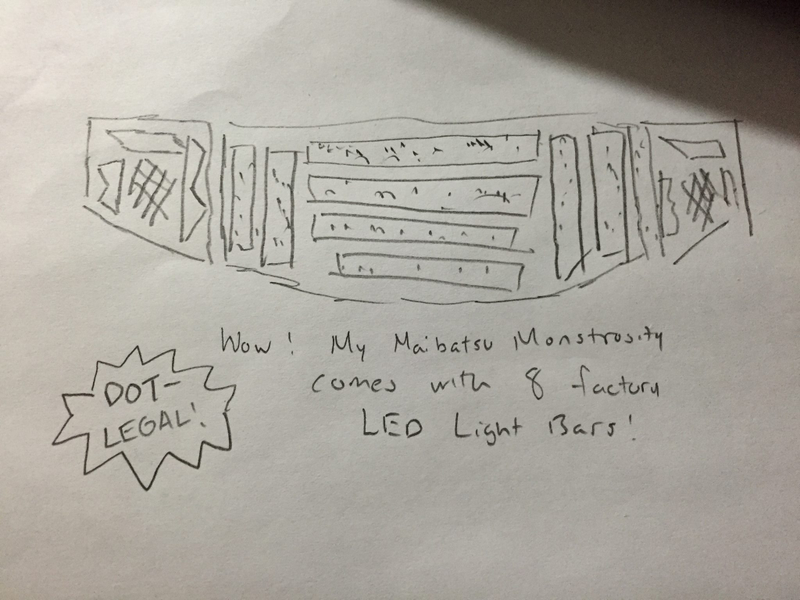 Wow! My Maibatsu Monstrosity
comes with 8 factory
LED Light Bars!
DOT-
LEGAL!